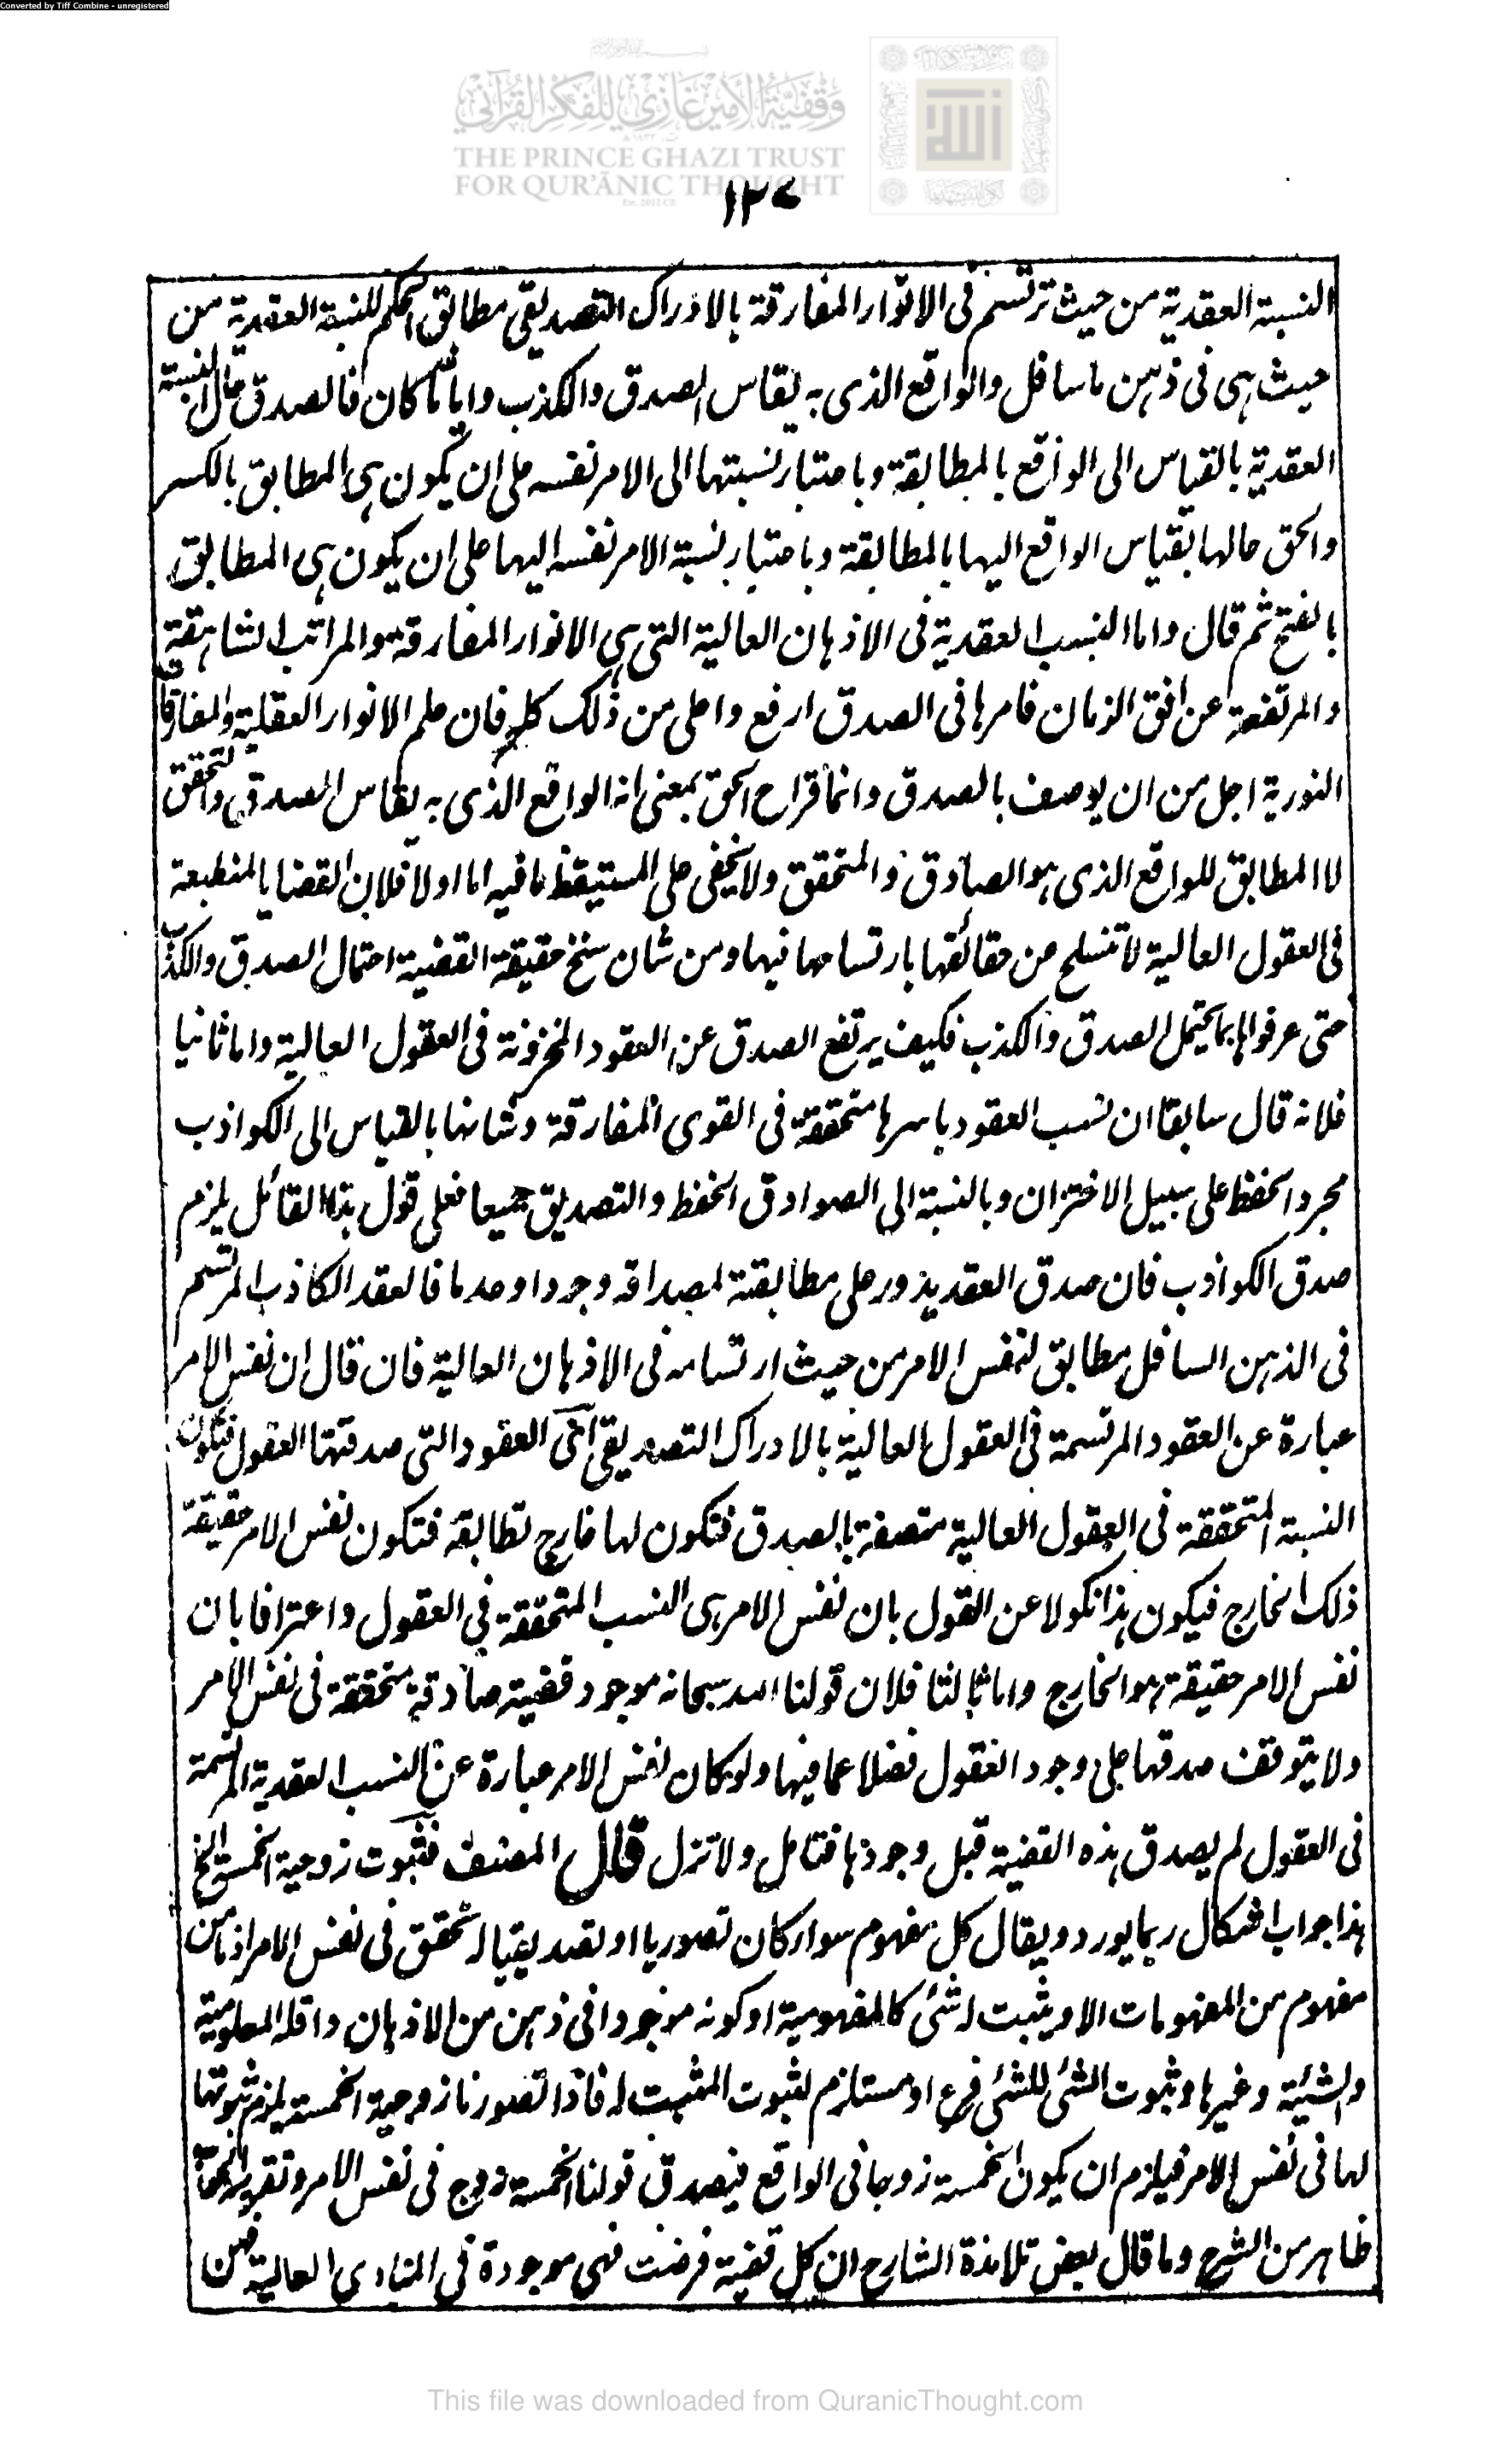 Converted by Tiff Combine - unregistered
وقفية الأمير غازي للفكر القرآني
THE PRINCE GHAZI TRUST
FOR QUR'ĀNIC THOUGHT
Est. 2012 CE
١٢٧
النسبة العقدية من حيث ترتسم فى الانوار المفارقة بالادراك التصديقى مطابق الحكم للنسبة العقدية من
حيث هى فى ذهن ما سافل والواقع الذى به يقاس الصدق والكذب وايا ما كان فالصدق حال النسبة
العقدية بالقياس الى الواقع بالمطابقة وباعتبار نسبتها الى الامر نفسه على ان يكون هى المطابق بالكسر
والحق حالها بقياس الواقع اليها بالمطابقة وباعتبار نسبة الامر نفسه اليها على ان يكون هى المطابق
بالفتح ثم قال واما النسب العقدية فى الاذهان العالية التى هى الانوار المفارقة والمراتب الشاهقة
والمرتفعة عن افق الزمان فامرها فى الصدق ارفع واعلى من ذلك كله فان علم الانوار العقلية والمفارقات
النورية اجل من ان يوصف بالصدق وانما قراح الحق بمعنى انه الواقع الذى به يقاس الصدق والتحقق
لا المطابق للواقع الذى هو الصادق والمتحقق ولا يخفى على المستيقظ ما فيه اما اولا فلان القضايا المنطبعة
فى العقول العالية لا تنسلخ عن حقائقها بارتسامها فيها ومن شان سنخ حقيقة القضية احتمال الصدق والكذب
حتى عرفوها بما يحتمل الصدق والكذب فكيف يرتفع الصدق عن العقود المخزونة فى العقول العالية واما ثانيا
فلانه قال سابقا ان نسب العقود باسرها متحققة فى القوى المفارقة وشانها بالقياس الى الكواذب
مجرد الحفظ على سبيل الاختزان وبالنسبة الى الصوادق الحفظ والتصديق جميعا فعلى قول هذا القائل يلزم
صدق الكواذب فان صدق العقد يدور على مطابقته لمصداقه وجودا وعدما فالعقد الكاذب المرتسم
فى الذهن السافل مطابق لنفس الامر من حيث ارتسامه فى الاذهان العالية فان قال ان نفس الامر
عبارة عن العقود المرتسمة فى العقول العالية بالادراك التصديقى اعنى العقود التى صدقتها العقول فتكون
النسبة المتحققة فى العقول العالية متصفة بالصدق فتكون لها خارج تطابقه فتكون نفس الامر حقيقة
ذلك الخارج فيكون هذا نكولا عن القول بان نفس الامر هى النسب المتحققة فى العقول واعترافا بان
نفس الامر حقيقة هو الخارج واما ثالثا فلان قولنا الله سبحانه موجود قضية صادقة متحققة فى نفس الامر
ولا يتوقف صدقها على وجود العقول فضلا عما فيها ولو كان نفس الامر عبارة عن النسب العقدية المرتسمة
فى العقول لم يصدق هذه القضية قبل وجودها فتامل ولا تزل قال المصنف فثبوت زوجية الخمسة الخ
هذا جواب اشكال ربما يورد ويقال كل مفهوم سواء كان تصوريا او تصديقيا له تحقق فى نفس الامر اذ ما من
مفهوم من المفهومات الا ويثبت له شئ كالمفهومية او كونه موجودا فى ذهن من الاذهان واقله المعلومية
والشيئية وغيرها وثبوت الشئ للشئ فرع او مستلزم لثبوت المثبت له فاذا تصورنا زوجية الخمسة يلزم ثبوتها
لها فى نفس الامر فيلزم ان يكون الخمسة زوجا فى الواقع فيصدق قولنا الخمسة زوج فى نفس الامر وتقرير الجواب
ظاهر من الشرح وما قال بعض تلامذة الشارح ان كل قضية فرضت فهى موجودة فى المبادى العالية فمن
This file was downloaded from QuranicThought.com